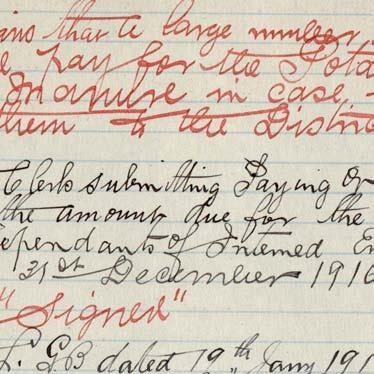 ins that a large number
e pay for the Pota
manure in case
them to the Distric
Clerk submitting Paying Or
the amount due for the
ependants of Interned En
31st December 1916
"Signed"
L. G. B dated 19th Jany 191